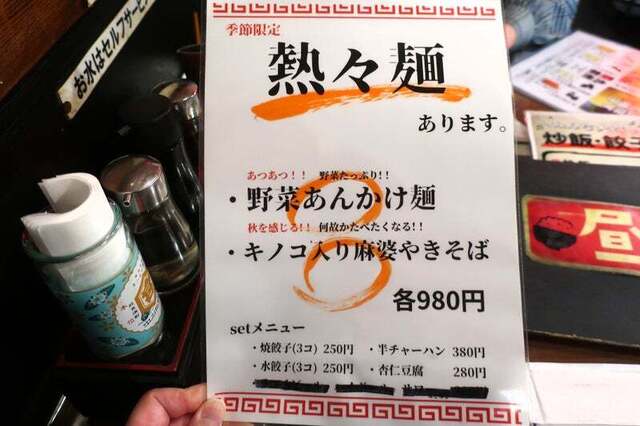 お水はセルフサービ
季節限定
熱々麺
あります。
あつあつ!! 野菜たっぷり!!
・野菜あんかけ麺
秋を感じる!! 何故かたべたくなる!!
・キノコ入り麻婆やきそば
各980円
setメニュー
・焼餃子(3コ) 250円 ・半チャーハン 380円
・水餃子(3コ) 250円 ・杏仁豆腐 280円
炒飯・餃子
昼